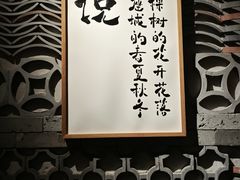 棵树的花开花落
座城的春夏秋冬